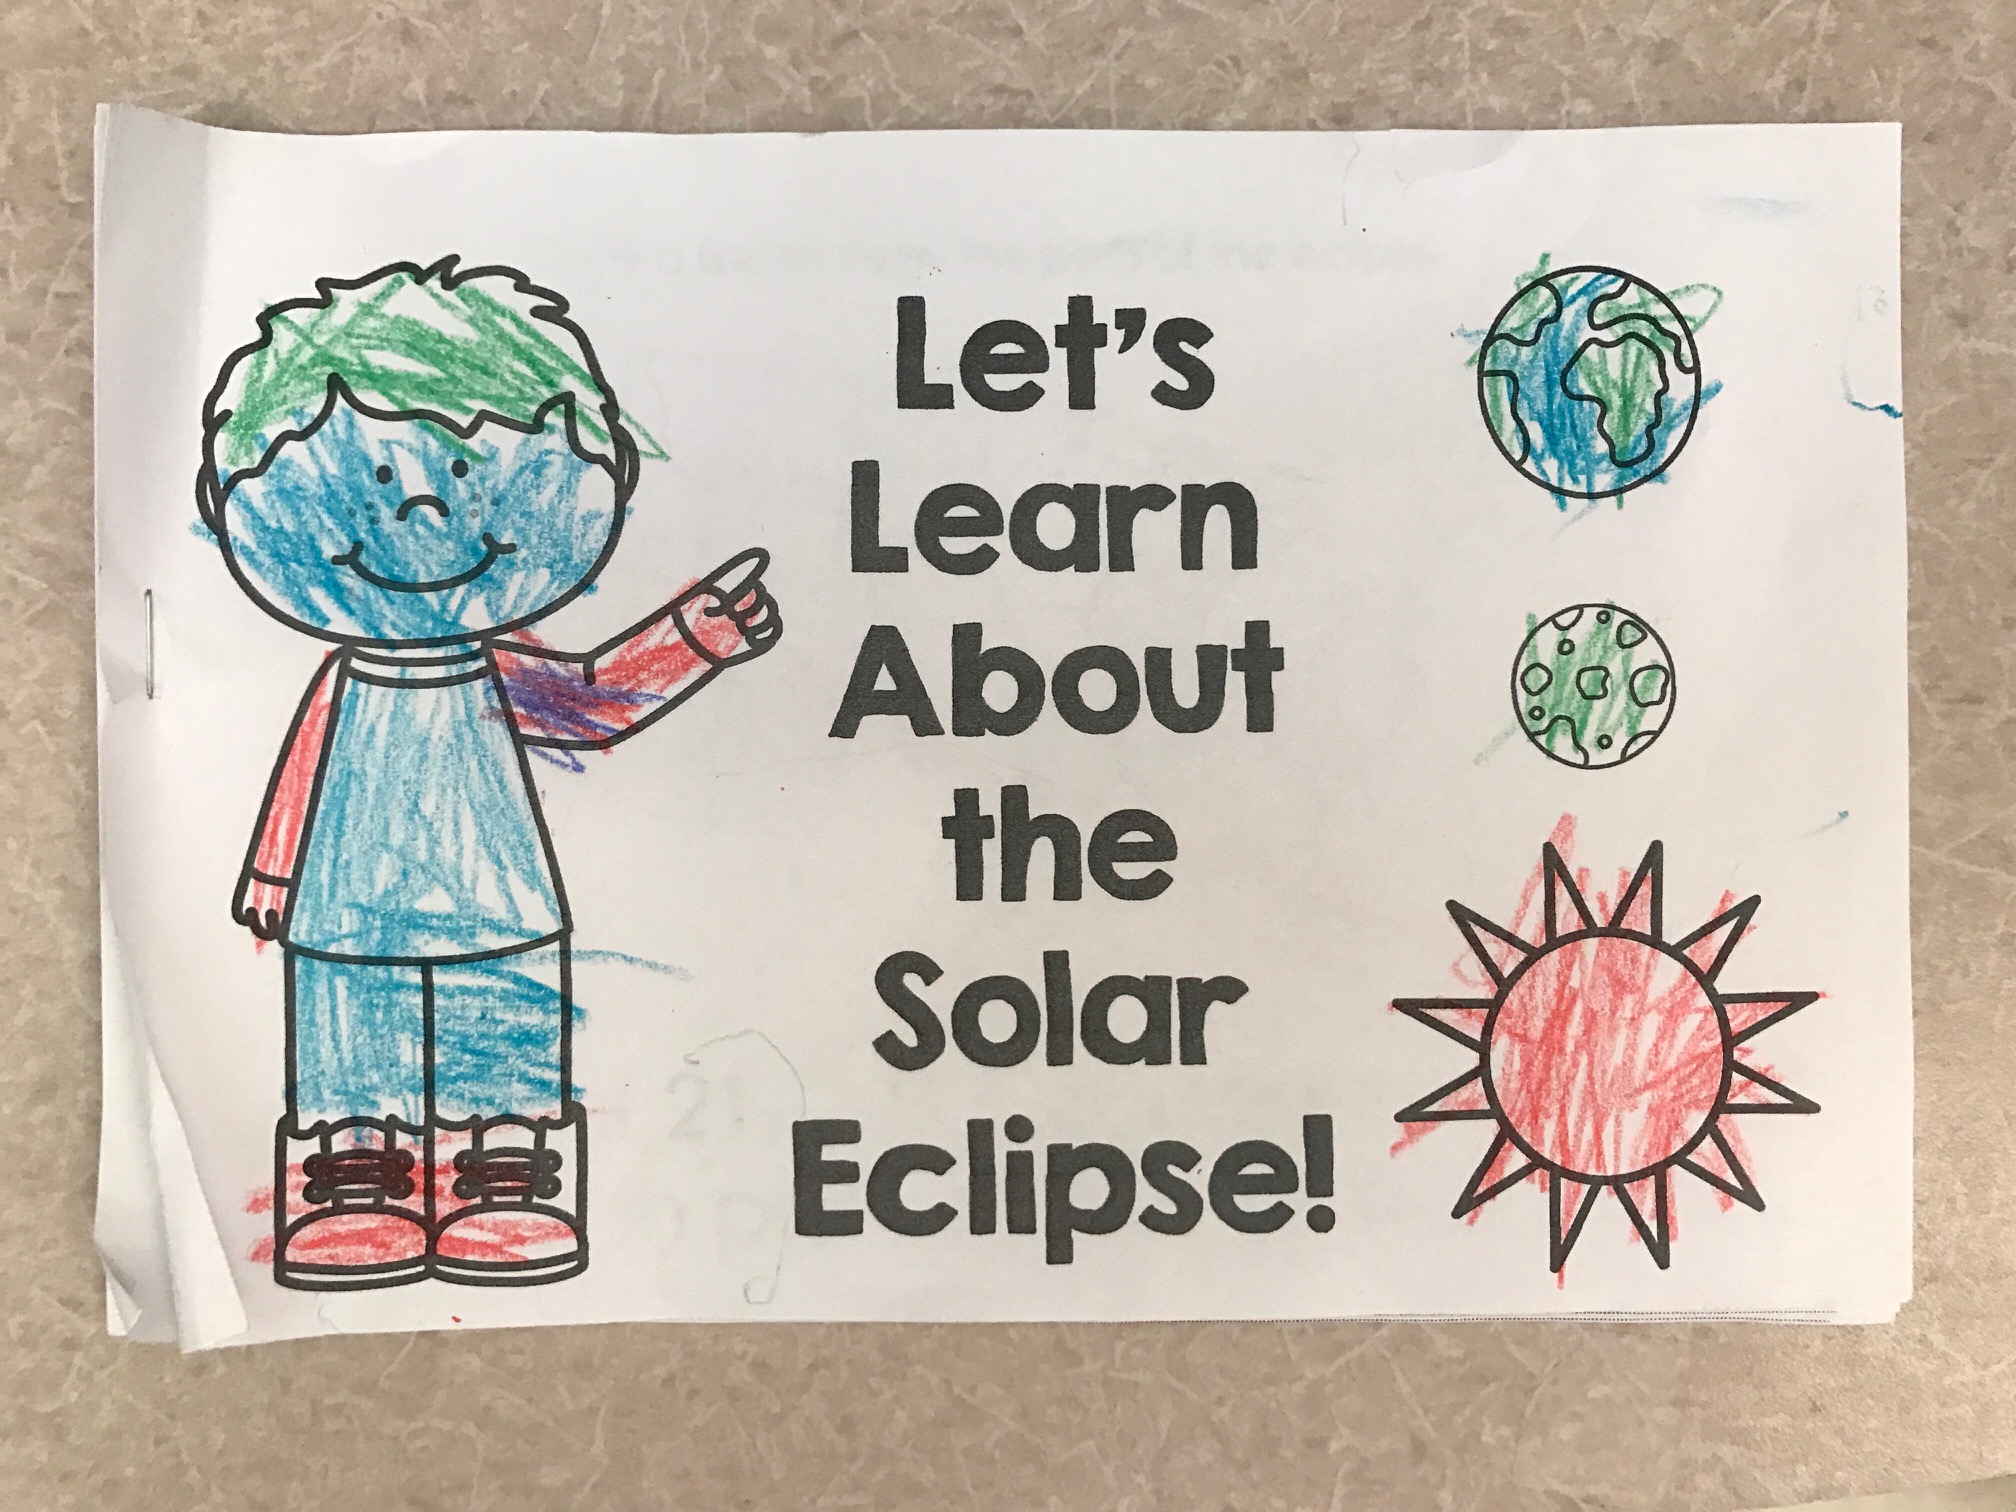 Let's
Learn
About
the
Solar
Eclipse!